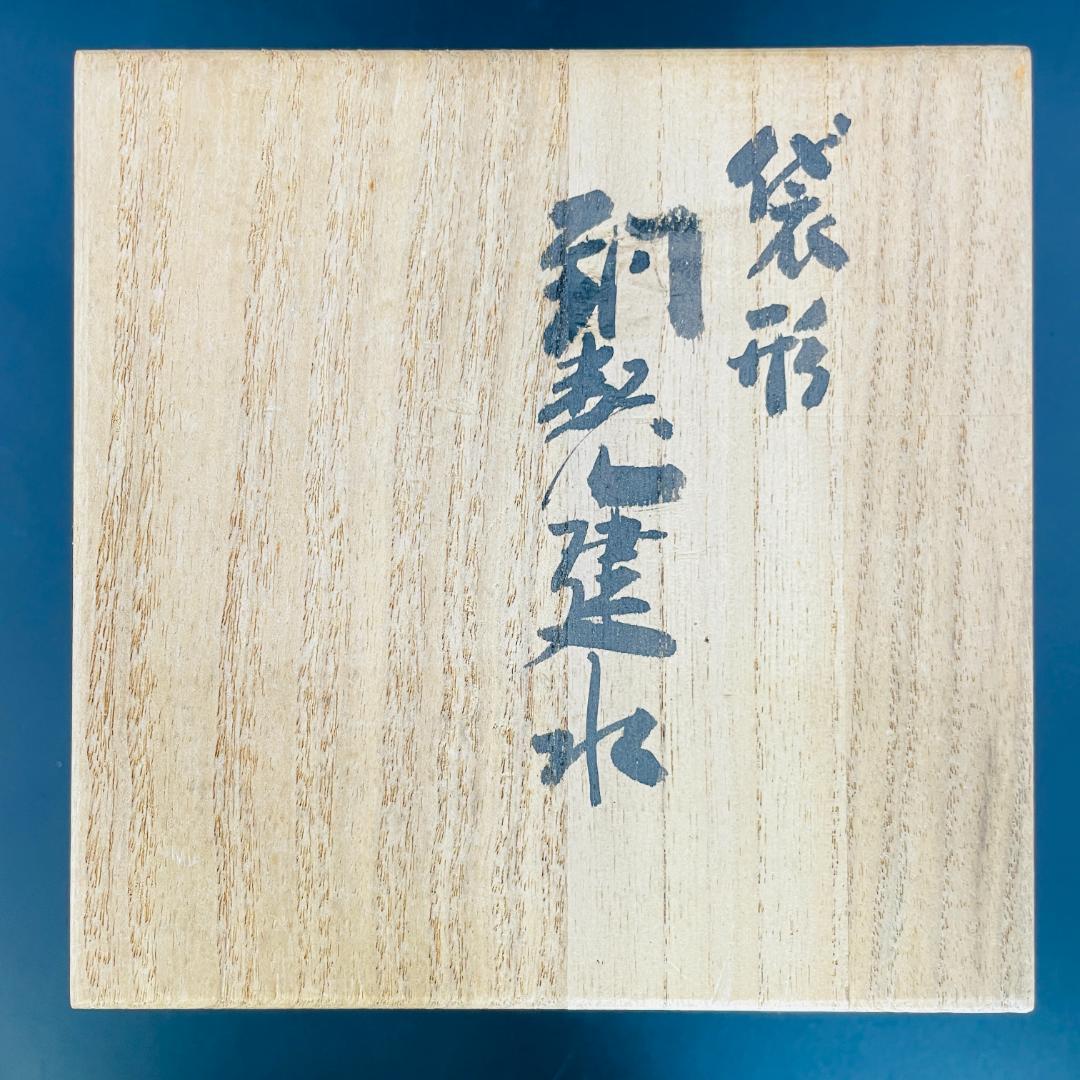 袋形
銅製建水